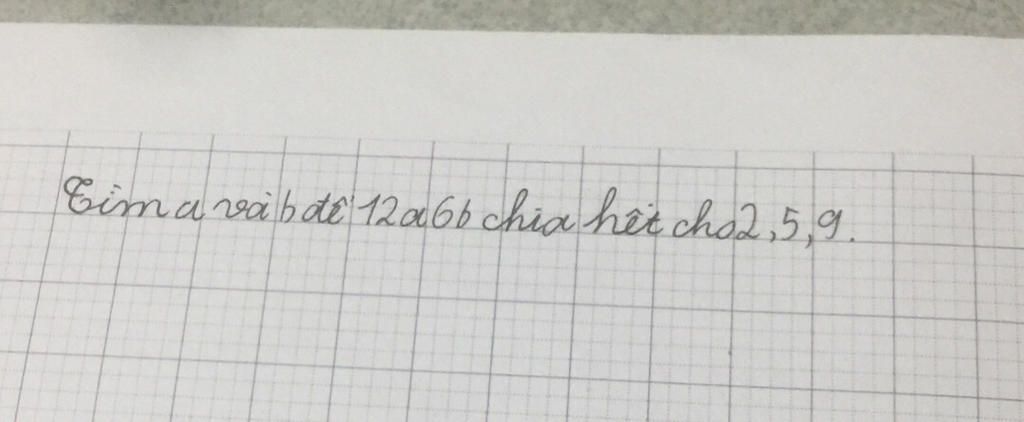 Tìm a và b để 12a6b chia hết cho 2, 5, 9.